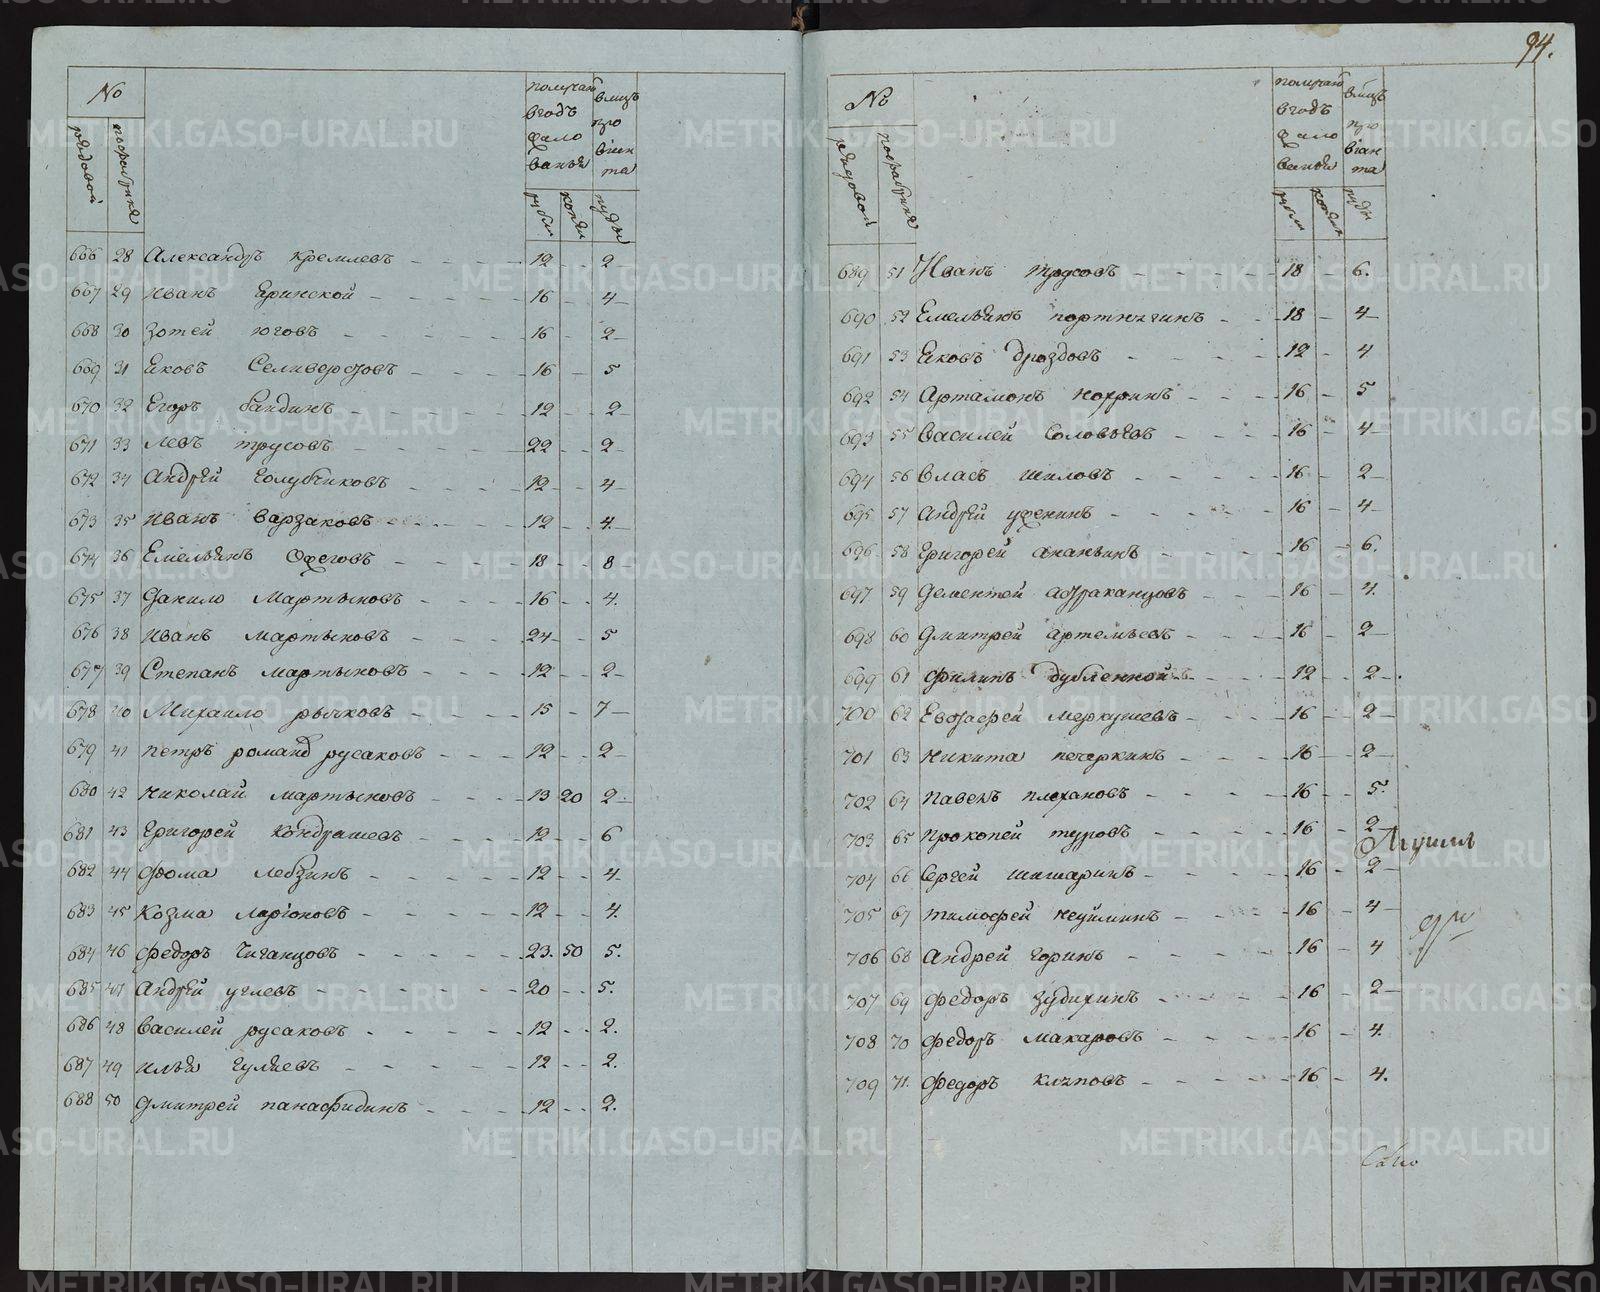 №
рядовой
пофабрике
получаютъ
вгодъ
жало
ванья
вмцъ
про
віан
та
рубли
копѣи
пуды
666 28 Александръ Кремлевъ 12 2
667 29 Иванъ Еринской 16 4
668 30 Зотей Юговъ 16 2
669 31 Яковъ Селиверстовъ 16 5
670 32 Егоръ Бандинъ 12 2
671 33 Левъ Трусовъ 22 2
672 34 Андрѣй Голубчиковъ 12 4
673 35 Иванъ Варзаковъ 12 4
674 36 Емельянъ Ожеговъ 18 8
675 37 Данило Мартыновъ 16 4.
676 38 Иванъ Мартыновъ 24 5
677 39 Степанъ Мартыновъ 12 2
678 40 Михаило Рычковъ 15 7
679 41 Петръ Русаковъ 12 2
680 42 Николай Мартыновъ 13 20 2
681 43 Григорей Кондрашевъ 12 6
682 44 Фома Лебзинъ 12 4
683 45 Козма Ларіоновъ 12 4.
684 46 Федоръ Чиганцовъ 23. 50 5.
685 47 Андрѣй Углевъ 20 5.
686 48 Василей Русаковъ 12 2.
687 49 Илья Гуляевъ 12 2.
688 50 Дмитрей Панафидинъ 12 2.
94.
№
рядовой
пофабрике
получаютъ
вгодъ
жало
ванья
вмцъ
про
віан
та
рубли
копѣи
пуды
689 51 Иванъ Трусовъ 18 6.
690 52 Емельянъ Портнягинъ 18 4
691 53 Яковъ Дроздовъ 12 4
692 54 Артамонъ Нохринъ 16 5
693 55 Василей Соловьевъ 16 4
694 56 Власъ Шиловъ 16 2
695 57 Андрѣй Уженинъ 16 4
696 58 Григорей Ананьинъ 16 6.
697 59 Дементей Астраханцовъ 16 4.
698 60 Дмитрей Артемьевъ 16 2
699 61 Филипъ Дубленной 12 2
700 62 Евстафей Меркушевъ 16 2
701 63 Никита Печеркинъ 16 2
702 64 Павелъ Плехановъ 16 5.
703 65 Прокопей Туровъ 16 2
704 66 Сергѣй Шишаринъ 16 2
705 67 Тимофей Неуйминъ 16 4
706 68 Андрей Горинъ 16 4
707 69 Федоръ Зудихинъ 16 2
708 70 Федоръ Макаровъ 16 4.
709 71. Федоръ Кляповъ 16 4.
METRIKI.GASO-URAL.RU